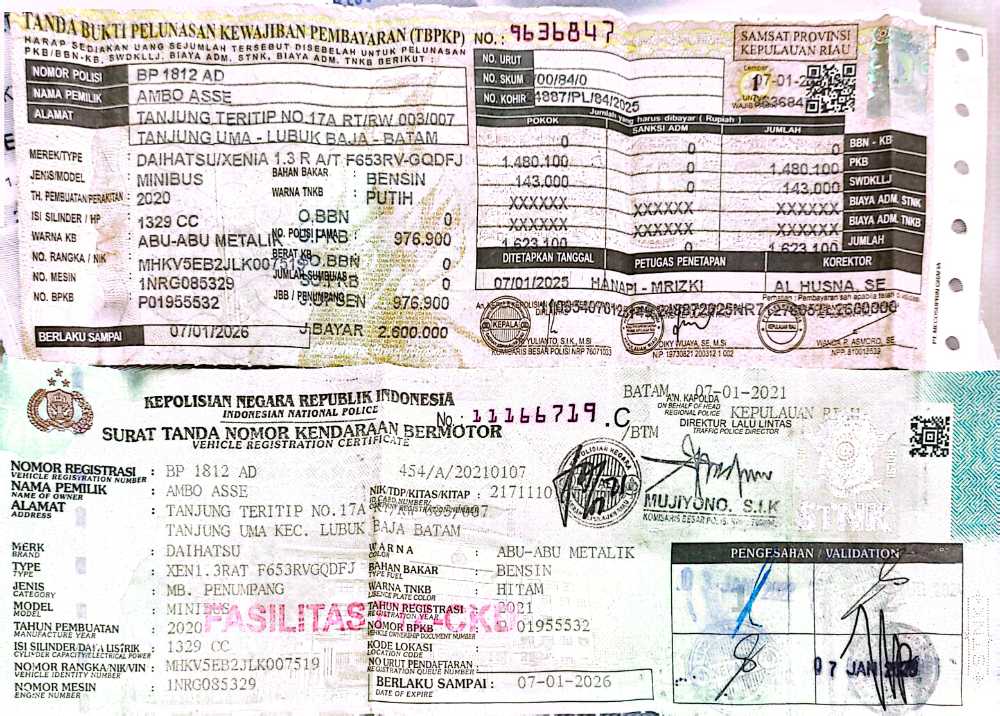 TANDA BUKTI PELUNASAN KEWAJIBAN PEMBAYARAN (TBPKP) NO.: 9636847
HARAP SEDIAKAN UANG SEJUMLAH TERSEBUT DISEBELAH UNTUK PELUNASAN
PKB/BBN-KB, SWDKLLJ, BIAYA ADM. STNK, BIAYA ADM. TNKB BERIKUT :
SAMSAT PROVINSI
KEPULAUAN RIAU
NOMOR POLISI BP 1812 AD
NAMA PEMILIK AMBO ASSE
ALAMAT TANJUNG TERITIP NO.17A RT/RW 003/007
TANJUNG UMA - LUBUK BAJA - BATAM
MEREK/TYPE : DAIHATSU/XENIA 1.3 R A/T F653RV-GQDFJ
JENIS/MODEL : MINIBUS BAHAN BAKAR : BENSIN
TH. PEMBUATAN/PERAKITAN : 2020 WARNA TNKB : PUTIH
ISI SILINDER / HP : 1329 CC O.BBN 0
WARNA KB : ABU-ABU METALIK NO. POLISI LAMA 976.900
NO. RANGKA / NIK : BERAT KB O.BBN 0
NO. MESIN : 1NRG085329 0
NO. BPKB : P01955532 JBB / PENUMPANG 976.900
BERLAKU SAMPAI : 07/01/2026 J.BAYAR 2.600.000
NO. URUT
NO. SKUM /00/84/0
NO. KOHIR 4887/PL/84/2025
Lembar
1
07-01-2
Jumlah yang harus dibayar ( Rupiah )
POKOK SANKSI ADM JUMLAH
0 0 0 BBN - KB
1.480.100 0 1.480.100 PKB
143.000 0 143.000 SWDKLLJ
XXXXXX XXXXXX XXXXXX BIAYA ADM. STNK
XXXXXX XXXXXX XXXXXX BIAYA ADM. TNKB
1.623.100 0 1.623.100 JUMLAH
DITETAPKAN TANGGAL PETUGAS PENETAPAN KOREKTOR
07/01/2025 HANAPI - MRIZKI AL HUSNA, SE
KEPALA
YULIANTO, S.I.K, M.SI
KOMBARIS BESAR POLISI NRP 76071003
DIKY WIJAYA, SE, M.Si
NIP 19730821 200312 1 002
KEPOLISIAN NEGARA REPUBLIK INDONESIA
INDONESIAN NATIONAL POLICE
No. 11166719 .C
SURAT TANDA NOMOR KENDARAAN BERMOTOR /BTM
VEHICLE REGISTRATION CERTIFICATE
BATAM, 07-01-2021
A.N. KAPOLDA KEPULAUAN RIAU
ON BEHALF OF HEAD
REGIONAL POLICE
DIREKTUR LALU LINTAS
TRAFFIC POLICE DIRECTOR
MUJIYONO, S.I.K
STNK
NOMOR REGISTRASI : BP 1812 AD 454/A/20210107
VEHICLE REGISTRATION NUMBER
NAMA PEMILIK : AMBO ASSE NIK/TDP/KITAS/KITAP : 2171110
NAME OF OWNER
ALAMAT : TANJUNG TERITIP NO.17A
ADDRESS
TANJUNG UMA KEC. LUBUK BAJA BATAM
MERK : DAIHATSU WARNA : ABU-ABU METALIK
BRAND COLOR
TYPE : XEN1.3RAT F653RVGQDFJ BAHAN BAKAR : BENSIN
TYPE TYPE FUEL
JENIS : MB. PENUMPANG WARNA TNKB : HITAM
CATEGORY LICENSE PLATE COLOR
MODEL : MINIBUS TAHUN REGISTRASI : 2021
MODEL REGISTRATION YEAR
TAHUN PEMBUATAN : 2020 NOMOR BPKB 01955532
MANUFACTURE YEAR VEHICLE OWNERSHIP DOCUMENT NUMBER
FASILITAS
ISI SILINDER/DAYA LISTRIK : 1329 CC KODE LOKASI :
CYLINDER CAPACITY/ELECTRICAL POWER LOCATION CODE
NOMOR RANGKA/NIK/VIN : MHKV5EB2JLK007519 NO URUT PENDAFTARAN :
VEHICLE IDENTITY NUMBER REGISTRATION QUEUE NUMBER
NOMOR MESIN : 1NRG085329 BERLAKU SAMPAI : 07-01-2026
ENGINE NUMBER DATE OF EXPIRE
PENGESAHAN / VALIDATION
07 JAN